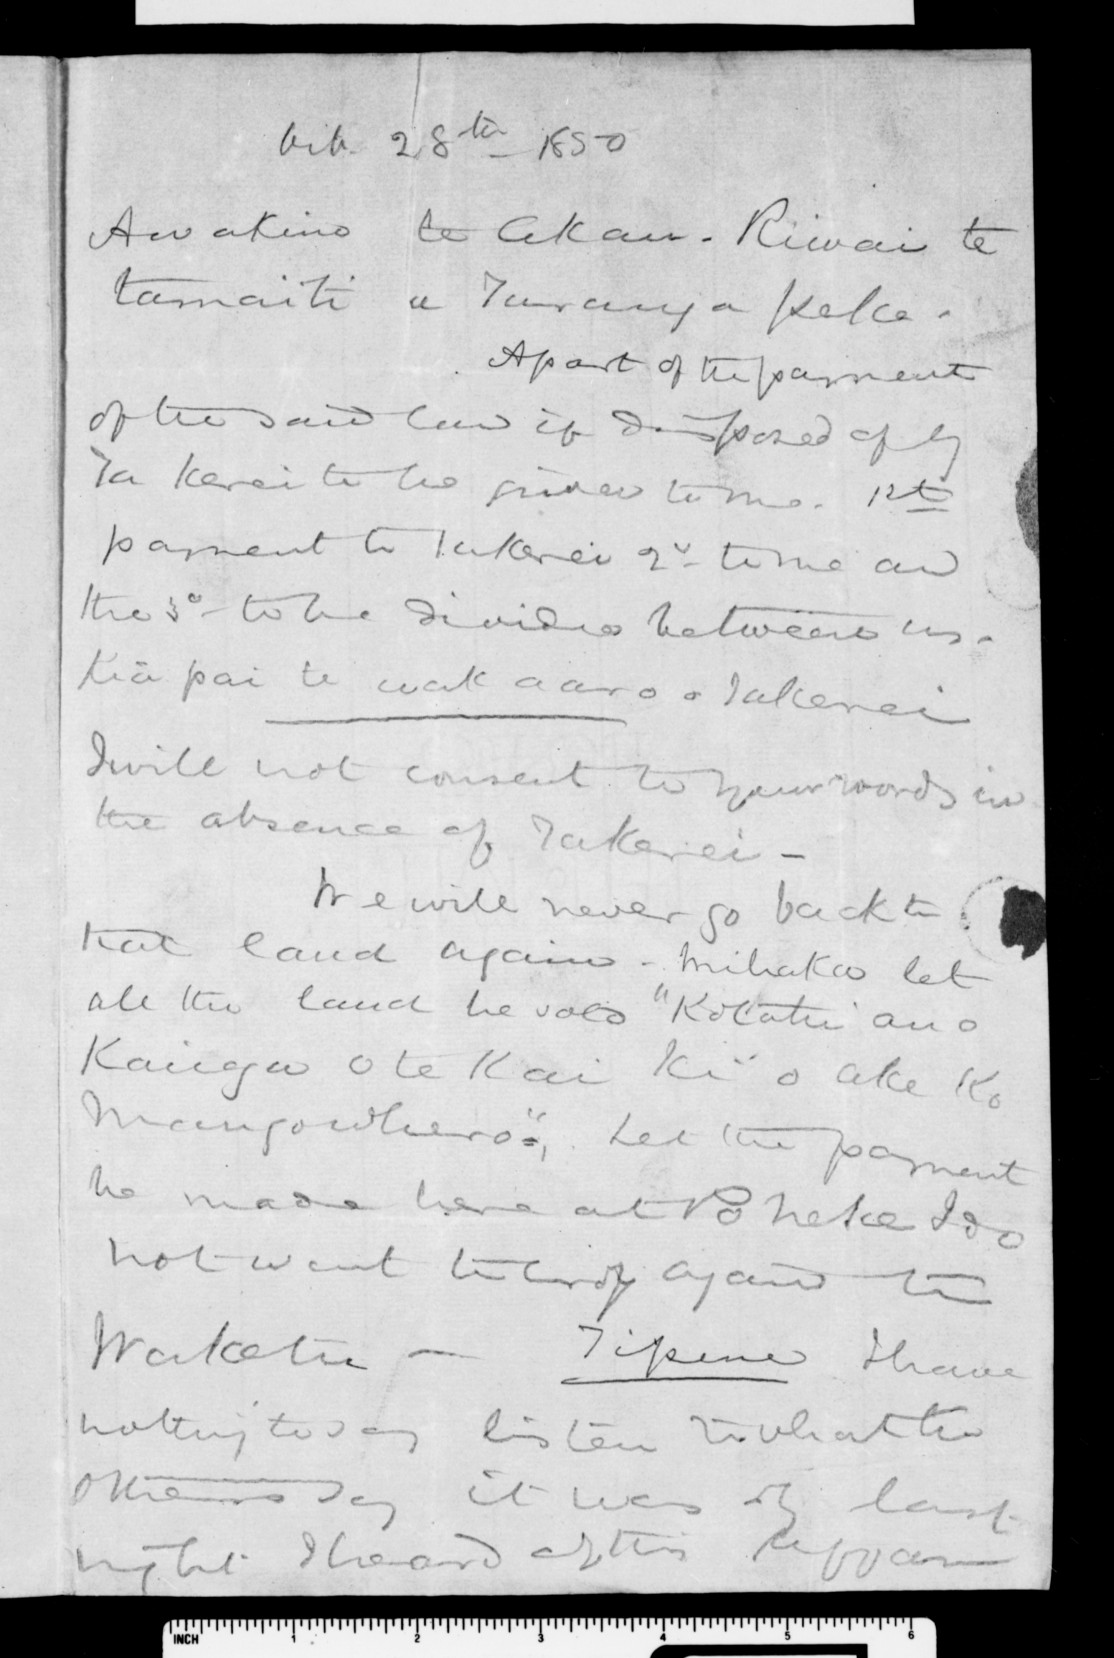 Feb. 28th 1850
Awakino te Akau. Riwai te
tamaiti a Turanga peke.
A part of the payment
of the said land if disposed of by
Ta Kerei to be given to me. 1st
payment to Takerei 2d to me and
the 3d to be divided between us.
Kia pai te wak aaro o Takerei
I will not consent to your words in
the absence of Takerei -
We will never go back to
that land again. Mihaka let
all the land be sold "Kotatu ano
Kainga o te Kai Ki" o ake Ko
Mangowhero", Let the payment
be made here at Po neke I do
not want to again to
Wakatu - Tipene I have
nothing to say listen to what the
others say it was only last
night I heard of this
INCH 1 2 3 4 5 6